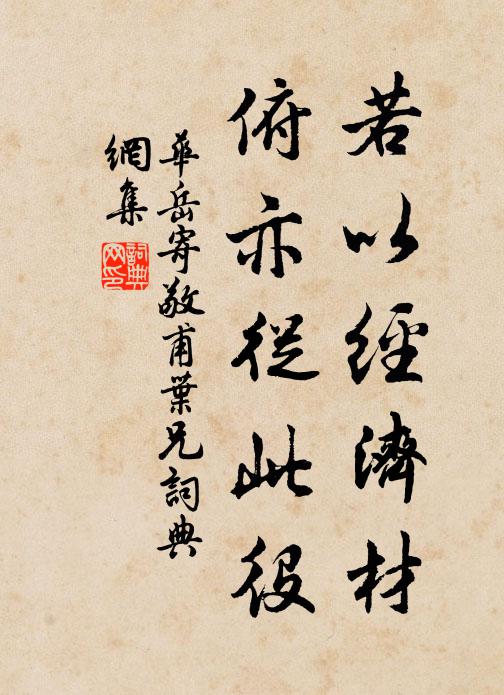 若以經濟材
俯亦從此役
華岳寄敬甫葉兄詞典
網集
詞典
网印